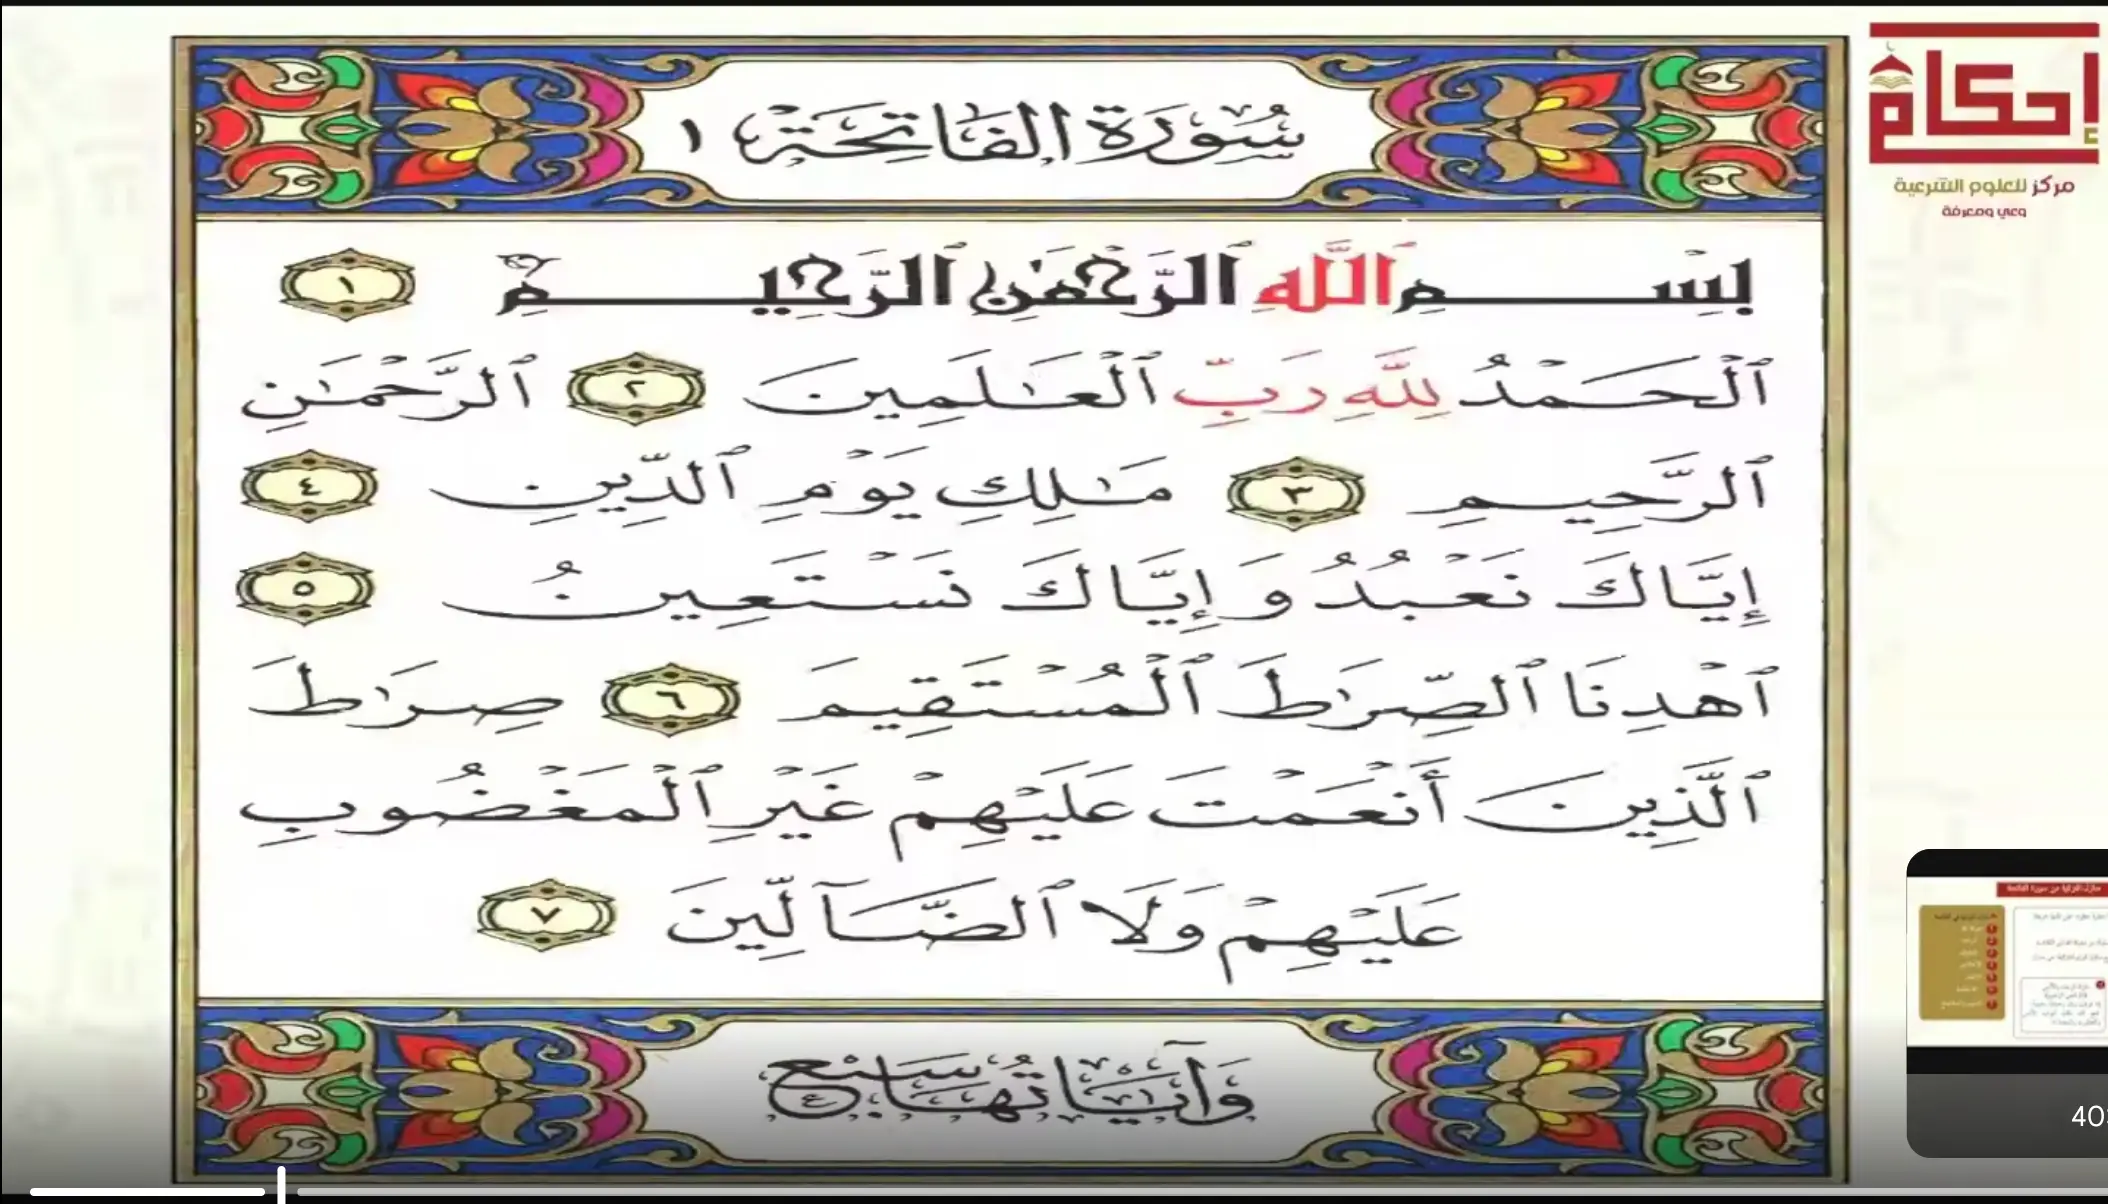 سُورَةُ الفَاتِحَةِ ١
إحكام
مركز للعلوم الشرعية
وعي ومعرفة
بِسْمِ ٱللَّهِ ٱلرَّحْمَٰنِ ٱلرَّحِيمِ ١
ٱلْحَمْدُ لِلَّهِ رَبِّ ٱلْعَٰلَمِينَ ٢ ٱلرَّحْمَٰنِ
ٱلرَّحِيمِ ٣ مَٰلِكِ يَوْمِ ٱلدِّينِ ٤
إِيَّاكَ نَعْبُدُ وَإِيَّاكَ نَسْتَعِينُ ٥
ٱهْدِنَا ٱلصِّرَٰطَ ٱلْمُسْتَقِيمَ ٦ صِرَٰطَ
ٱلَّذِينَ أَنْعَمْتَ عَلَيْهِمْ غَيْرِ ٱلْمَغْضُوبِ
عَلَيْهِمْ وَلَا ٱلضَّآلِّينَ ٧
وَآيَاتُهَا سَبْعٌ
40: